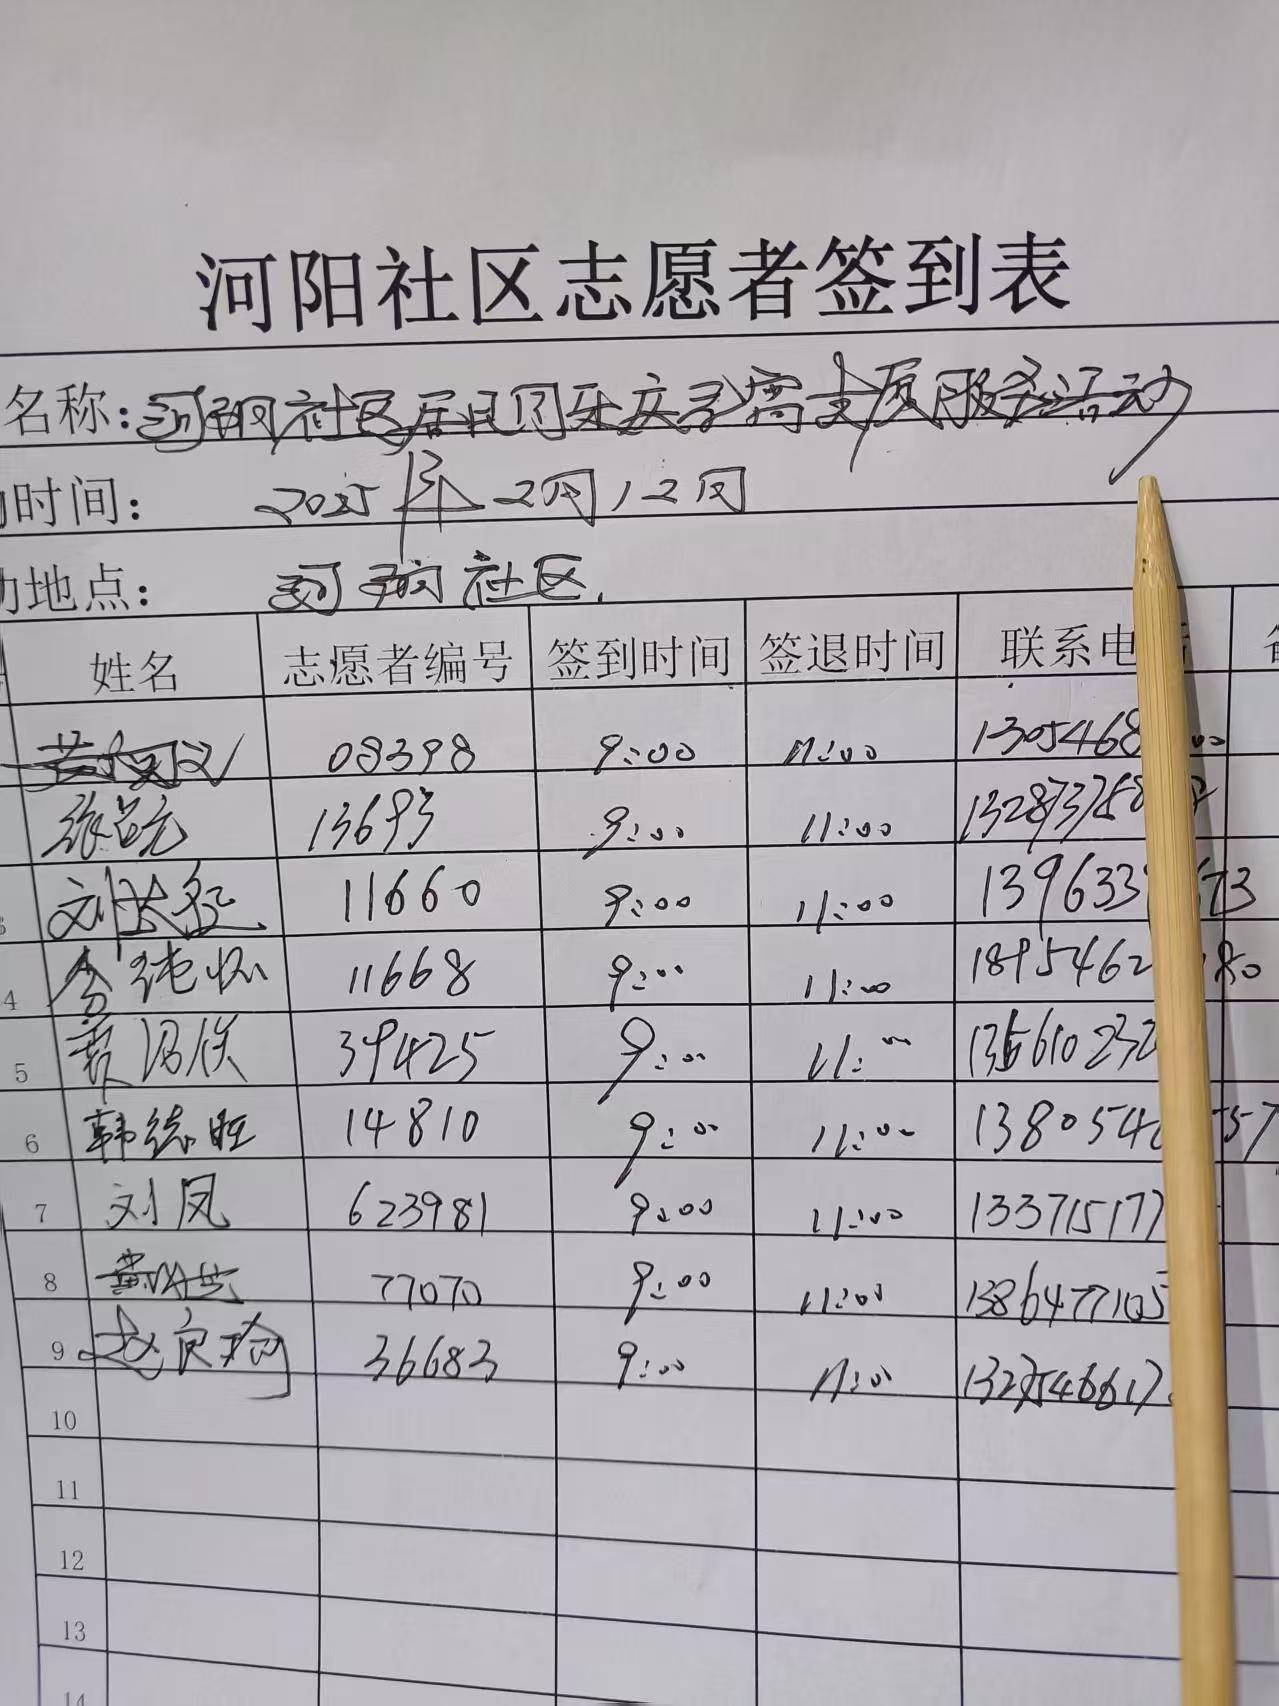 河阳社区志愿者签到表
名称:河阳社区居民服务活动
时间: 2025年2月12日
地点: 河阳社区
姓名 志愿者编号 签到时间 签退时间 联系电
08398 9:00 11:00 1305468 00
13693 9:00 11:00 132873758
刘长征 11660 9:00 11:00 139633 673
4 纯怀 11668 9:00 11:00 1895462 180
5 39425 9:00 11:00 135610232
6 韩德旺 14810 9:00 11:00 1380546 57
7 刘凤 623981 9:00 11:00 133715177
8 黄 77070 9:00 11:00 13864771105
9 赵良 36683 9:00 11:00 1327546617
10
11
12
13
14